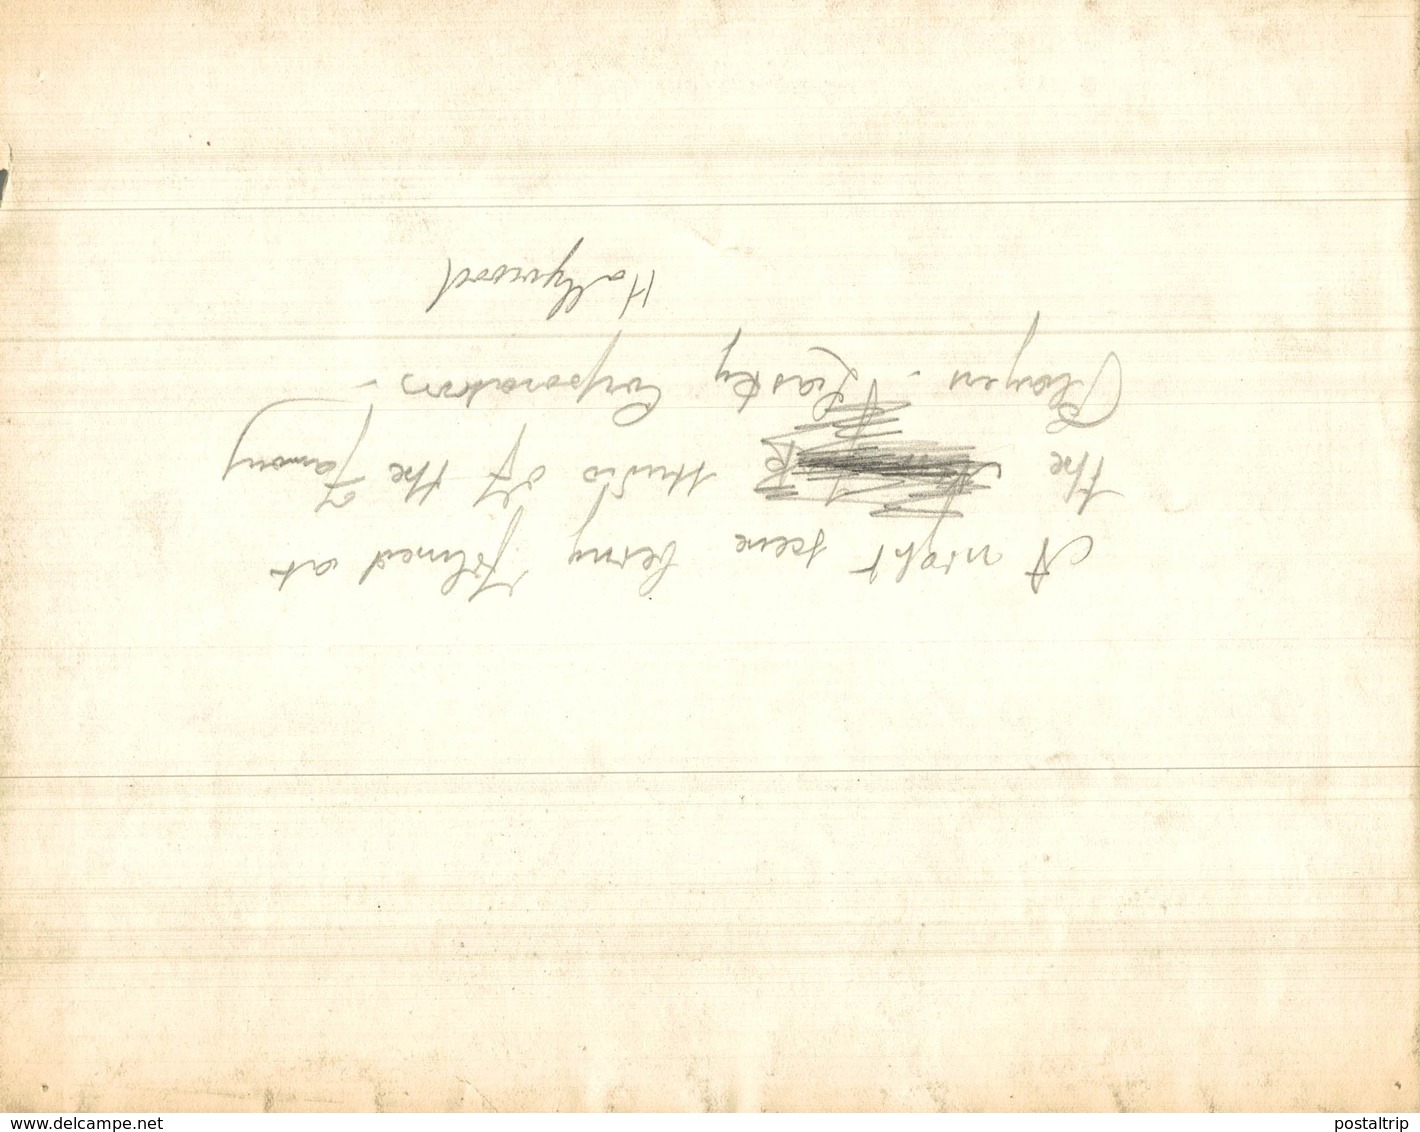 A night scene being filmed at
the studio of the Famous
Players - Lasky Corporation -
Hollywood
www.delcampe.net
postaltrip